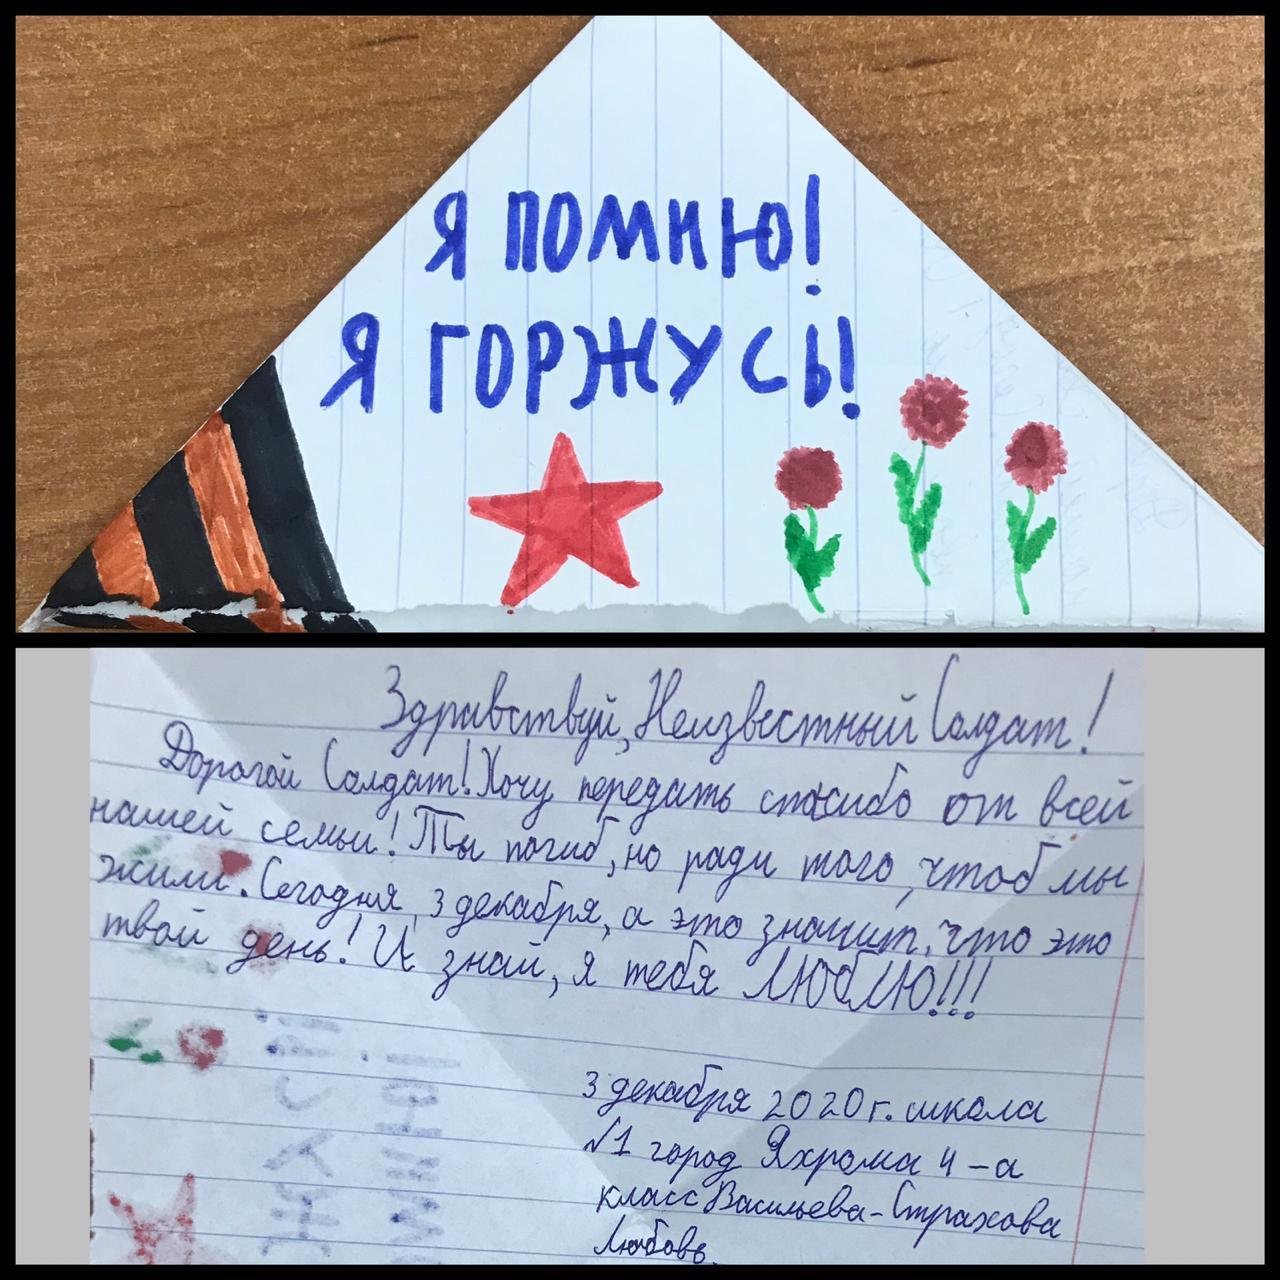 Я ПОМНЮ!
Я ГОРЖУСЬ!
Здравствуй, Неизвестный Солдат!
Дорогой Солдат! Хочу передать спасибо от всей
нашей семьи! Ты погиб, но ради того, чтоб мы
жили. Сегодня, 3 декабря, а это значит, что это
твой день! И знай, я тебя ЛЮБЛЮ!!!
3 декабря 2020 г. школа
№1 город Яхрома 4-а
класс Васильева-Страхова
Любовь